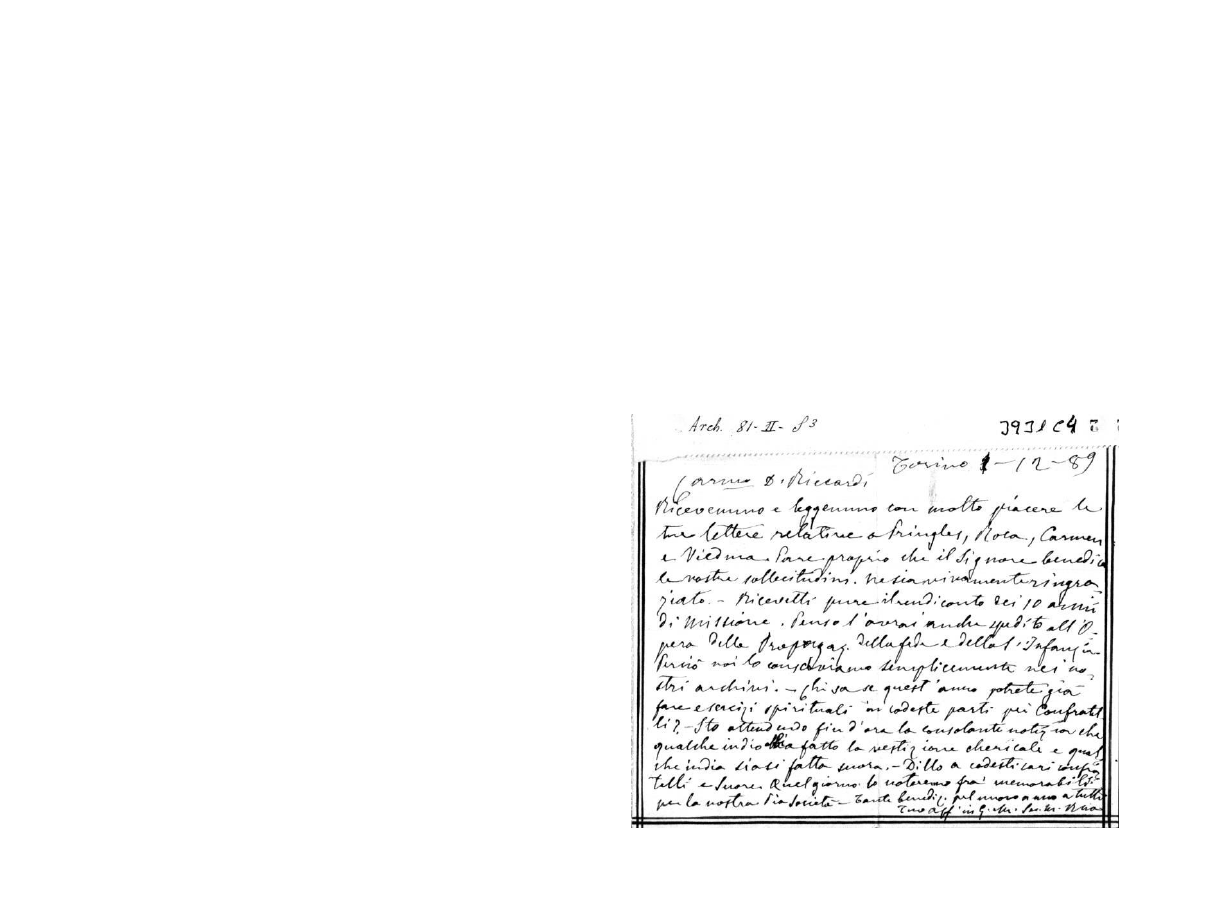 Arch. 81-II- S 3
3931 C4
Torino 1-12-89
Carmo D. Riccardi
Ricevemmo e leggemmo con molto piacere le
tue lettere relative a Pringles, Roca, Carmen
e Viedma. Pare proprio che il Signore benedica
le vostre sollecitudini. Ne sia vivamente ringra
ziato. - Ricevetti pure il rendiconto dei 10 anni
di Missione. Penso l'avrai anche spedito all'O-
pera della Propagaz. della fede e della S. Infanzia
Perciò noi lo conserviamo semplicemente nei no-
stri archivi. - Chi sa se quest'anno potrete già
fare esercizi spirituali in codeste parti pei Confratel
li? - Sto attendendo fin d'ora la consolante notizia che
qualche indio ha fatto la vestizione chericale e qual
che india siasi fatta suora. - Dillo a codesti cari confra-
telli e Suore. Quel giorno lo noteremo fra' memorabili
per la nostra Pia Società - Tante benediz. pel nuovo anno a tutti
Tuo aff. in G. M. Sac. M. Rua